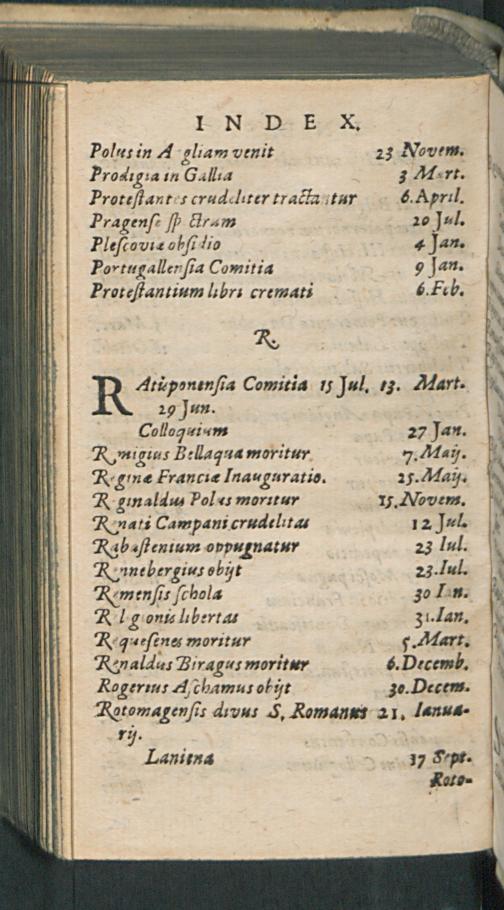 INDEX.
Polus in A gliam venit 23 Novem.
Prodigia in Gallia 3 Mart.
Protestantes crudeliter tractantur 6.April.
Pragense sp ctram 20 Jul.
Plescoviæ obsidio 4 Jan.
Portugallensia Comitia 9 Jan.
Protestantium libri cremati 6.Feb.
R.
RAtisponensia Comitia 15 Jul. 13. Mart.
29 Jun.
Colloquium 27 Jan.
R migius Bellaqua moritur 7.Maij.
R ginæ Franciæ Inauguratio. 25.Maij.
R ginaldus Polus moritur 15.Novem.
Renati Campani crudelitas 12 Jul.
Rabastenium oppugnatur 23 Iul.
Rennebergius obijt 23.Iul.
Remensis schola 30 Ian.
R l gionis libertas 31.Ian.
Requesenes moritur 5.Mart.
Renaldus Biragus moritur 6.Decemb.
Rogerius Aschamus obijt 30.Decem.
Rotomagensis divus S. Romanus 21. Ianua-
rij.
Laniena 17 Sept.
Roto-